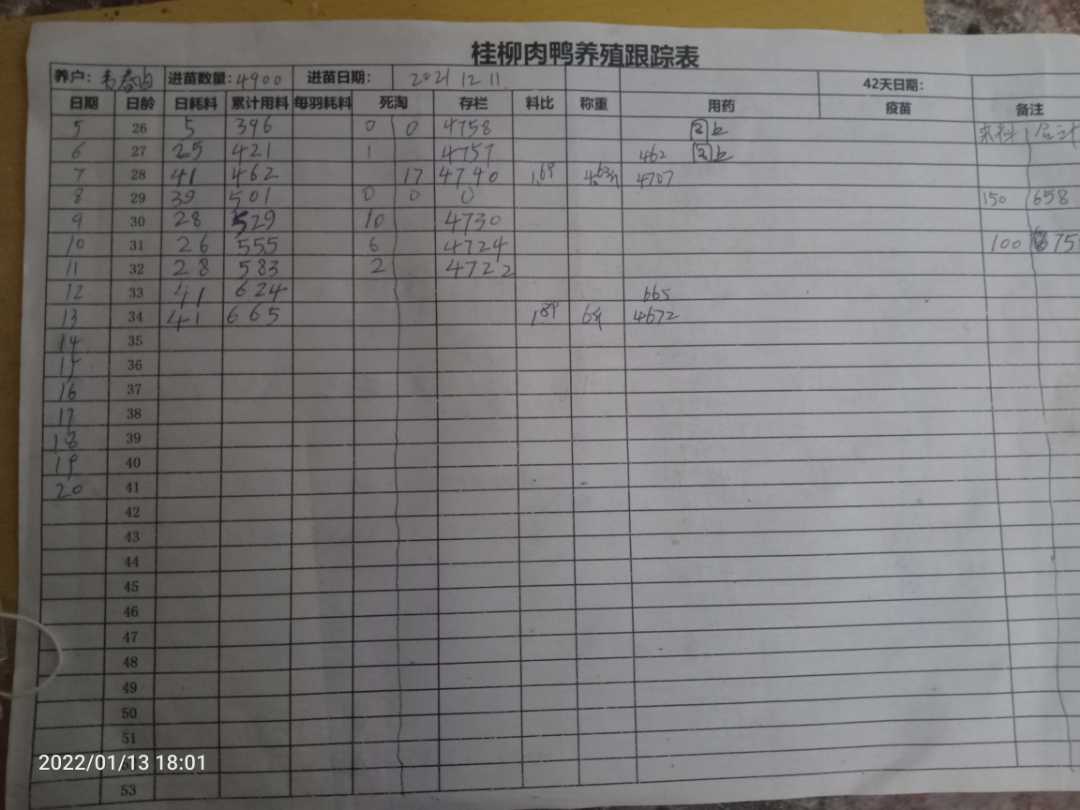 桂柳肉鸭养殖跟踪表
养户: 进苗数量:4900 进苗日期: 2021 12 11. 42天日期:
日期 日龄 日耗料 累计用料 每羽耗料 死淘 存栏 料比 称重 用药 疫苗 备注
5 26 5 396 0 0 4758 来料 合计
6 27 25 421 1 4757 462
7 28 41 462 17 4740 1.69 4707
8 29 39 501 0 0 0 150 658
9 30 28 529 10 4730
10 31 26 555 6 4724 100 675
11 32 28 583 2 4722
12 33 41 624 665
13 34 41 665 1.89 4672
14 35
15 36
16 37
17 38
18 39
19 40
20 41
42
43
44
45
46
47
48
49
50
51
53
2022/01/13 18:01